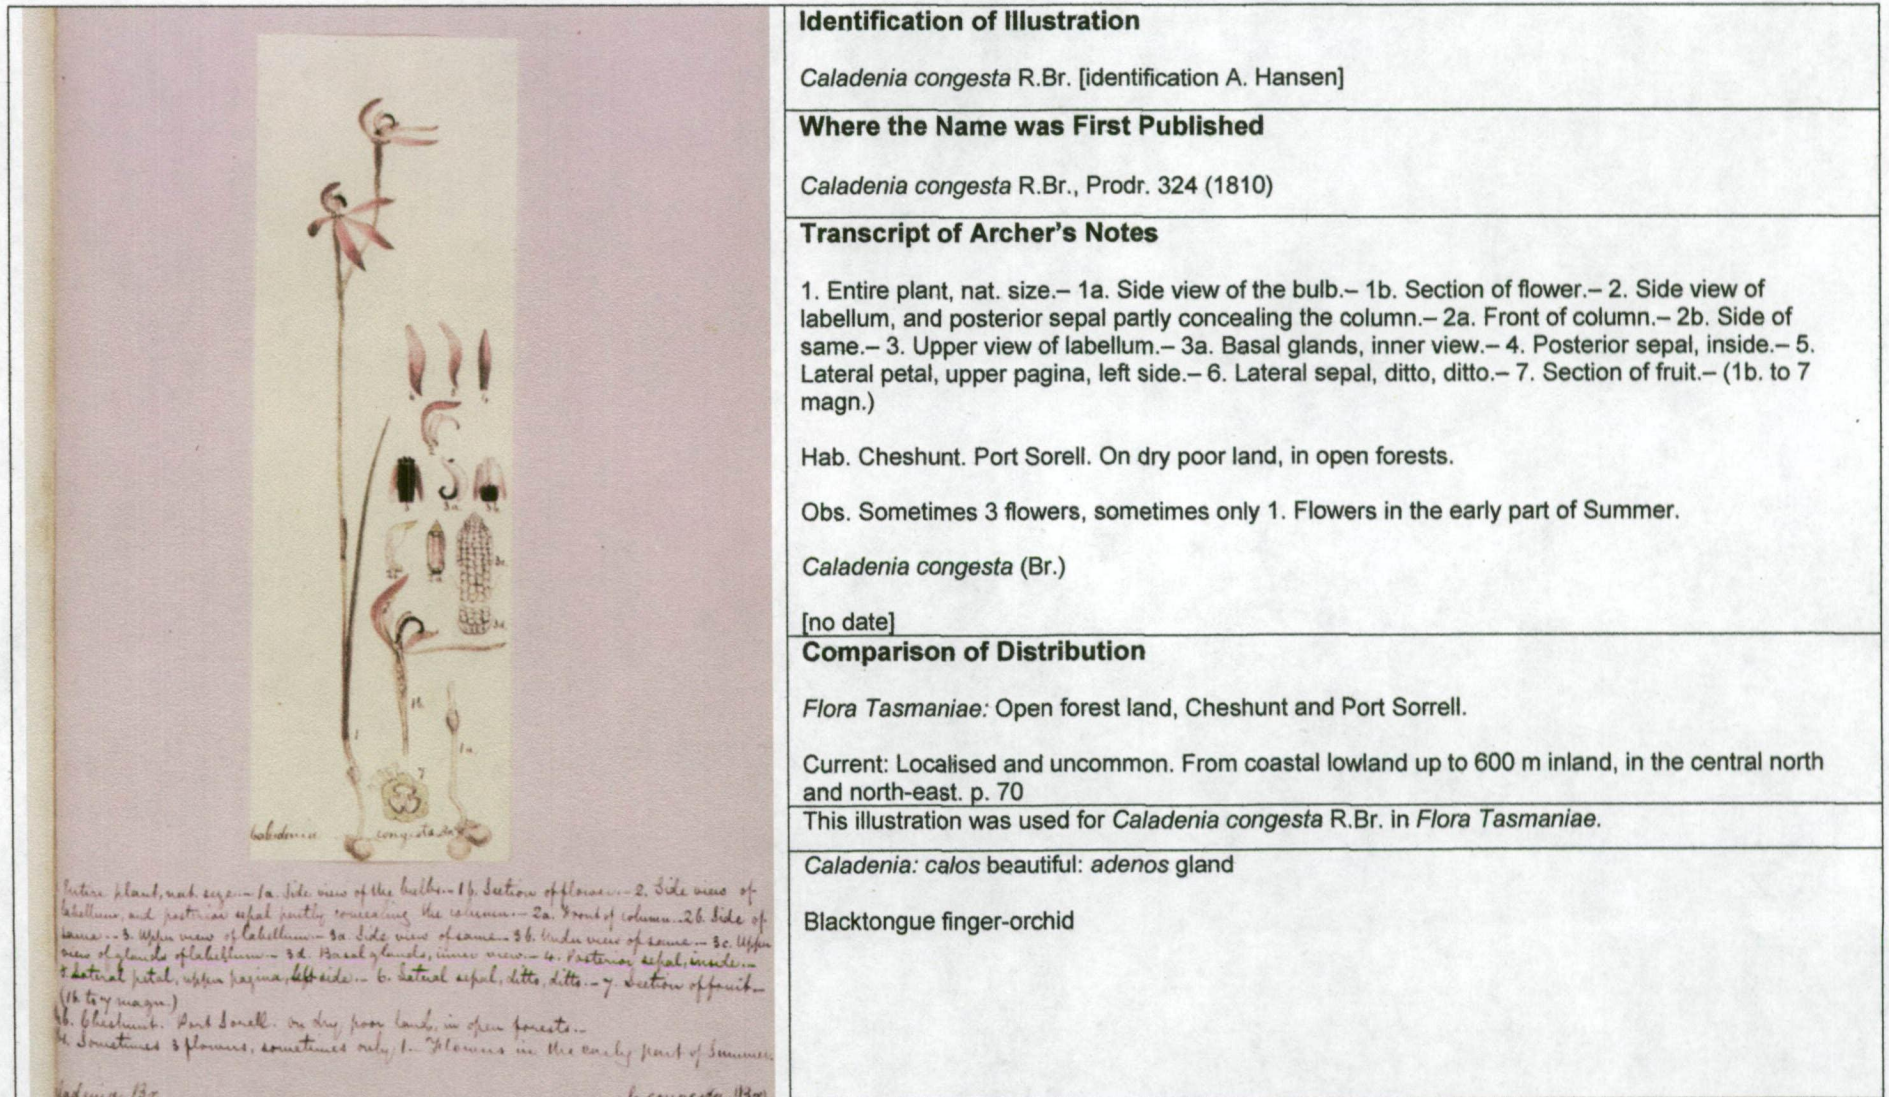 Caladenia congesta
1
1a
1b
7
3a
3b
3c
3d
Entire plant, nat. size. – 1a. Side view of the bulb. – 1b. Section of flower. – 2. Side view of
labellum, and posterior sepal partly concealing the column. – 2a. Front of column. – 2b. Side of
same. – 3. Upper view of labellum – 3a. Side view of same – 3b. Under view of same – 3c. Upper
view of glands of labellum – 3d. Basal glands, inner view. – 4. Posterior sepal, inside. –
5. Lateral petal, upper pagina, left side. – 6. Lateral sepal, ditto, ditto. – 7. Section of fruit –
(1b. to 7 magn.)
Hab. Cheshunt. Port Sorell. On dry, poor land, in open forests. –
Obs. Sometimes 3 flowers, sometimes only 1. – Flowers in the early part of Summer.
ladenia. Br.
C. congesta (Br.)
Identification of Illustration
Caladenia congesta R.Br. [identification A. Hansen]
Where the Name was First Published
Caladenia congesta R.Br., Prodr. 324 (1810)
Transcript of Archer's Notes
1. Entire plant, nat. size.– 1a. Side view of the bulb.– 1b. Section of flower.– 2. Side view of
labellum, and posterior sepal partly concealing the column.– 2a. Front of column.– 2b. Side of
same.– 3. Upper view of labellum.– 3a. Basal glands, inner view.– 4. Posterior sepal, inside.– 5.
Lateral petal, upper pagina, left side.– 6. Lateral sepal, ditto, ditto.– 7. Section of fruit.– (1b. to 7
magn.)
Hab. Cheshunt. Port Sorell. On dry poor land, in open forests.
Obs. Sometimes 3 flowers, sometimes only 1. Flowers in the early part of Summer.
Caladenia congesta (Br.)
[no date]
Comparison of Distribution
Flora Tasmaniae: Open forest land, Cheshunt and Port Sorrell.
Current: Localised and uncommon. From coastal lowland up to 600 m inland, in the central north
and north-east. p. 70
This illustration was used for Caladenia congesta R.Br. in Flora Tasmaniae.
Caladenia: calos beautiful: adenos gland
Blacktongue finger-orchid